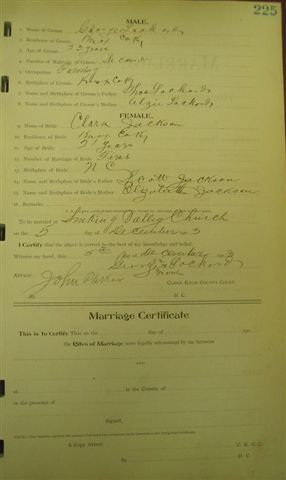 225
MALE.
1. Name of Groom George Lockard
2. Residence of Groom Knox Co Ky
3. Age of Groom 23 years
4. Number of Marriage of Groom Second
5. Occupation Farming
6. Birthplace of Groom Knox Co Ky
7. Name and Birthplace of Groom's Father Lockards
8. Name and Birthplace of Groom's Mother Lockards
FEMALE.
9. Name of Bride Clara Jackson
10. Residence of Bride Knox Co Ky
11. Age of Bride 21 years
12. Number of Marriage of Bride First
13. Birthplace of Bride N C
14. Name and Birthplace of Bride's Father Scott Jackson
15. Name and Birthplace of Bride's Mother Elizabeth Jackson
16. Remarks
To be married at Sinking Valley Church
on the 5 day of December 3
I Certify that the above is correct to the best of my knowledge and belief.
Witness my hand, this 5th day of December 190 3
George Lockard
Groom
Attest: John Parker
Clerk Knox County Court.
By D. C.
Marriage Certificate
This is to Certify That on the day of 190
the Rites of Marriage were legally solemnized by me between
and
at in the County of
in the presence of
Signed,
A Copy Attest: C. K. C. C.
By D. C.